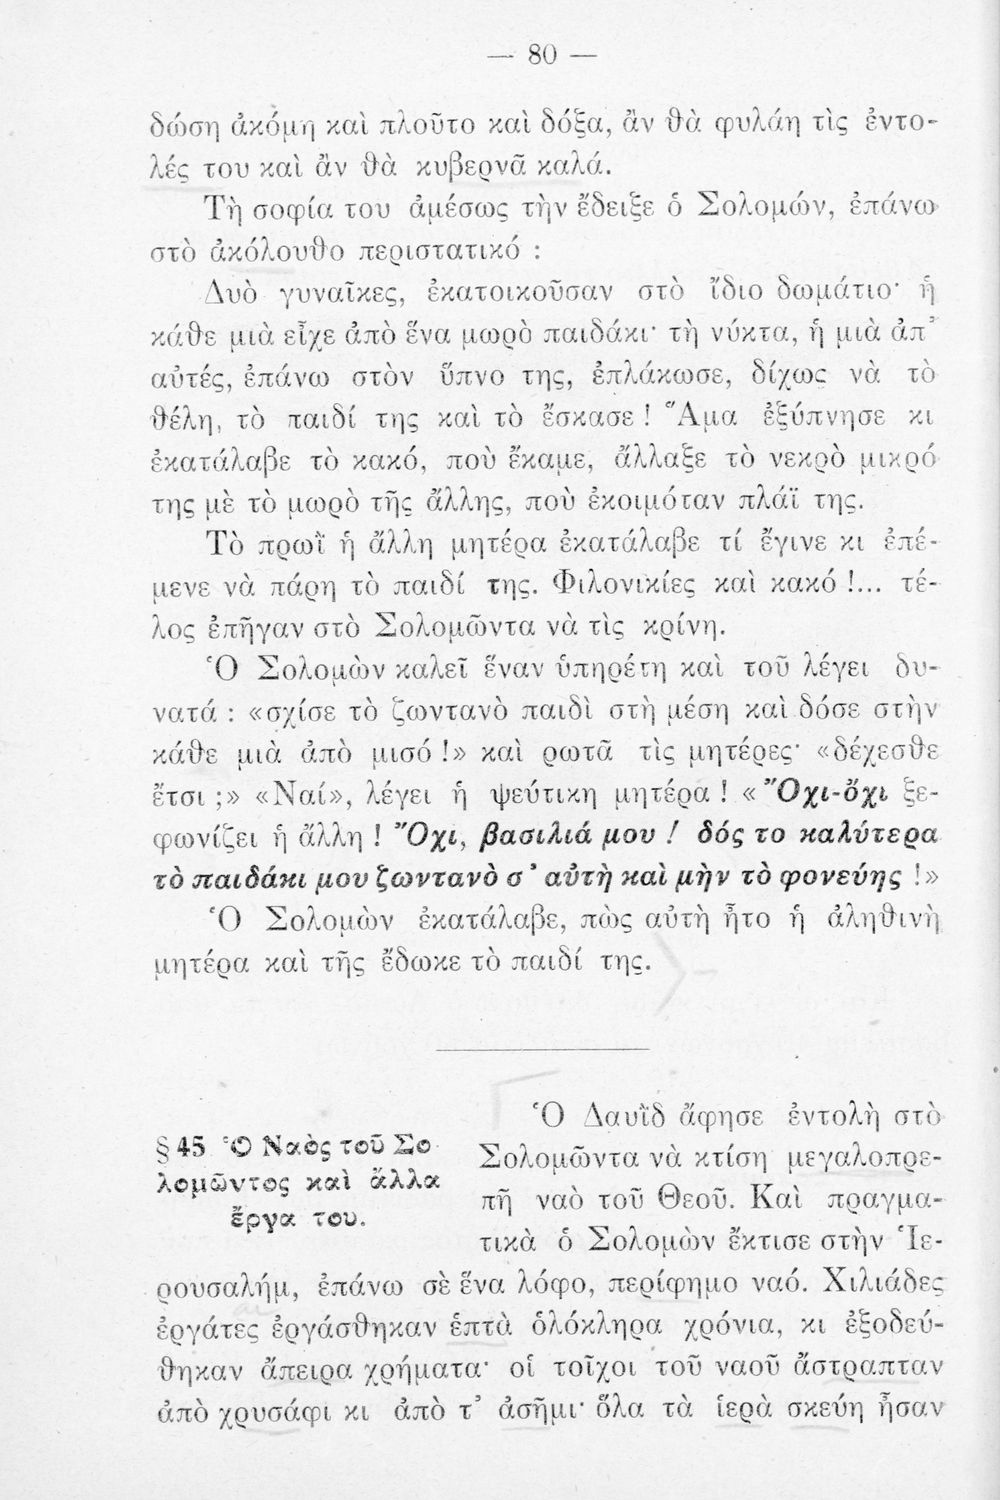 — 80 —
δώση ἀκόμη καὶ πλοῦτο καὶ δόξα, ἂν θὰ φυλάη τὶς ἐντο-
λές του καὶ ἂν θὰ κυβερνᾶ καλά.
Τὴ σοφία του ἀμέσως τὴν ἔδειξε ὁ Σολομών, ἐπάνω
στὸ ἀκόλουθο περιστατικό :
Δυὸ γυναῖκες, ἐκατοικοῦσαν στὸ ἴδιο δωμάτιο· ἡ
κάθε μιὰ εἶχε ἀπὸ ἕνα μωρὸ παιδάκι· τὴ νύκτα, ἡ μιὰ ἀπ’
αὐτές, ἐπάνω στὸν ὕπνο της, ἐπλάκωσε, δίχως νὰ τὸ
θέλη, τὸ παιδί της καὶ τὸ ἔσκασε ! Ἅμα ἐξύπνησε κι
ἐκατάλαβε τὸ κακό, ποὺ ἔκαμε, ἄλλαξε τὸ νεκρὸ μικρό
της μὲ τὸ μωρὸ τῆς ἄλλης, ποὺ ἐκοιμόταν πλάϊ της.
Τὸ πρωῒ ἡ ἄλλη μητέρα ἐκατάλαβε τί ἔγινε κι ἐπέ-
μενε νὰ πάρη τὸ παιδί της. Φιλονικίες καὶ κακό !... τέ-
λος ἐπῆγαν στὸ Σολομῶντα νὰ τὶς κρίνη.
Ὁ Σολομὼν καλεῖ ἕναν ὑπηρέτη καὶ τοῦ λέγει δυ-
νατά : «σχίσε τὸ ζωντανὸ παιδὶ στὴ μέση καὶ δόσε στὴν
κάθε μιὰ ἀπὸ μισό !» καὶ ρωτᾶ τὶς μητέρες· «δέχεσθε
ἔτσι ;» «Ναί», λέγει ἡ ψεύτικη μητέρα ! «Ὄχι-ὄχι ξε-
φωνίζει ἡ ἄλλη ! Ὄχι, βασιλιά μου ! δός το καλύτερα
τὸ παιδάκι μου ζωντανὸ σ’ αὐτὴ καὶ μὴν τὸ φονεύης !»
Ὁ Σολομὼν ἐκατάλαβε, πὼς αὐτὴ ἦτο ἡ ἀληθινὴ
μητέρα καὶ τῆς ἔδωκε τὸ παιδί της.
§ 45 Ὁ Ναὸς τοῦ Σο
λομῶντος καὶ ἄλλα
ἔργα του.
Ὁ Δαυῒδ ἄφησε ἐντολὴ στὸ
Σολομῶντα νὰ κτίση μεγαλοπρε-
πῆ ναὸ τοῦ Θεοῦ. Καὶ πραγμα-
τικὰ ὁ Σολομὼν ἔκτισε στὴν Ἱε-
ρουσαλήμ, ἐπάνω σὲ ἕνα λόφο, περίφημο ναό. Χιλιάδες
ἐργάτες ἐργάσθηκαν ἑπτὰ ὁλόκληρα χρόνια, κι ἐξοδεύ-
θηκαν ἄπειρα χρήματα· οἱ τοῖχοι τοῦ ναοῦ ἄστραπταν
ἀπὸ χρυσάφι κι ἀπὸ τ’ ἀσῆμι· ὅλα τὰ ἱερὰ σκεύη ἦσαν